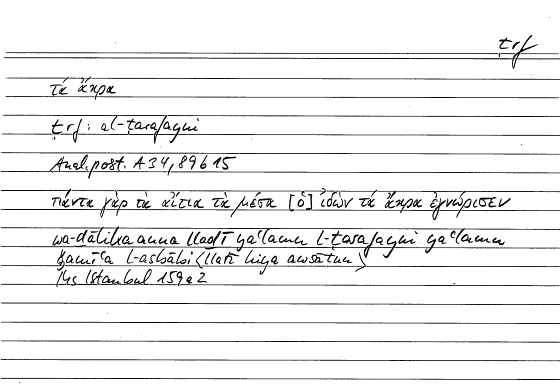 ṭrf
τὰ ἄκρα
ṭrf: al-ṭarafayni
Anal. post. A 34, 89 b 15
πάντα γὰρ τὰ αἴτια τὰ μέσα [ὁ] ἰδὼν τὰ ἄκρα ἐγνώρισεν
wa-ḏālika anna llaḏī yaʿlamu l-ṭarafayni yaʿlamu
ǧamīʿa l-asbābi ⟨llatī hiya awsāṭun⟩
Ms Istanbul 159 a 2